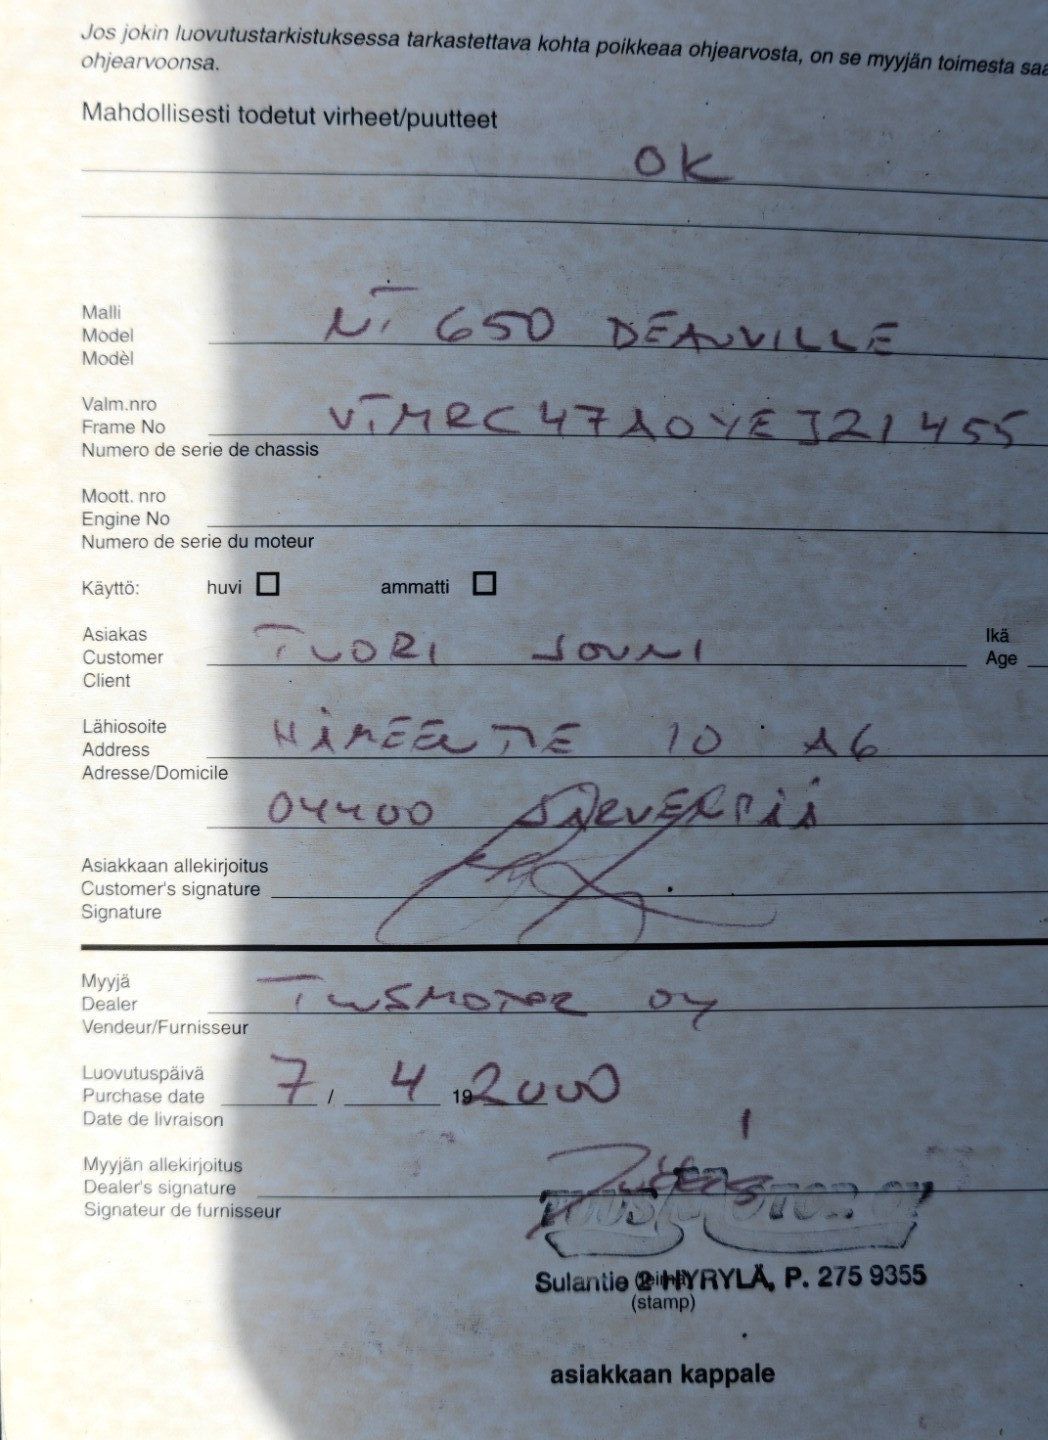 Jos jokin luovutustarkistuksessa tarkastettava kohta poikkeaa ohjearvosta, on se myyjän toimesta saa
ohjearvoonsa.
Mahdollisesti todetut virheet/puutteet
OK
Malli
Model NT 650 DEAUVILLE
Modèl
Valm.nro
Frame No VTMRC47A0YEJ21455
Numero de serie de chassis
Moott. nro
Engine No
Numero de serie du moteur
Käyttö: huvi ammatti
Asiakas Ikä
Customer TUORI JOUNI Age
Client
Lähiosoite
Address HÄMEENTIE 10 A6
Adresse/Domicile
04400 JÄRVENPÄÄ
Asiakkaan allekirjoitus
Customer's signature
Signature
Myyjä
Dealer TUUSMOTOR OY
Vendeur/Furnisseur
Luovutuspäivä
Purchase date 7 / 4 19 2000
Date de livraison
Myyjän allekirjoitus
Dealer's signature
Signateur de furnisseur
Sulantie 2 HYRYLÄ, P. 275 9355
(stamp)
asiakkaan kappale